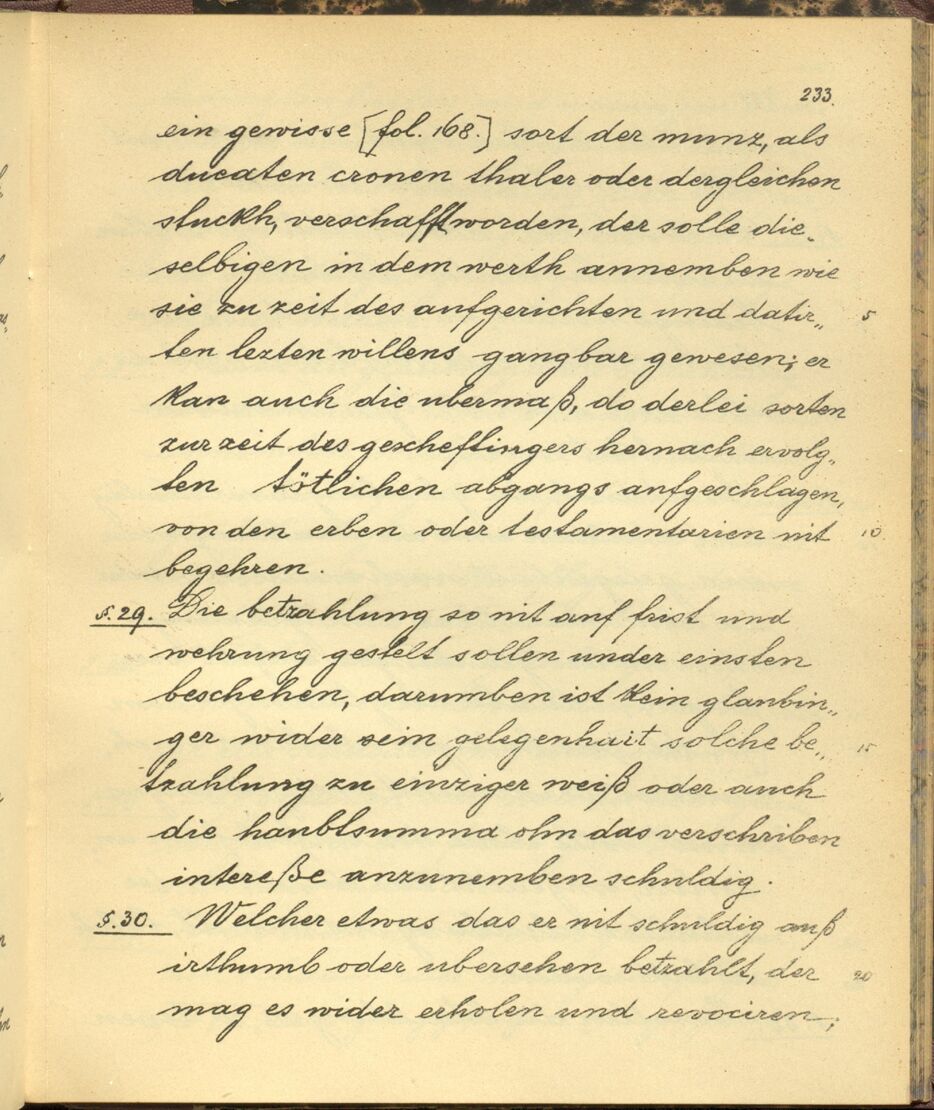 233.
ein gewisse [fol. 168.] sort der munz, als
ducaten cronen thaler oder dergleichen
stuckh, verschafft worden, der solle die„
selbigen in dem werth annemben wie
sie zu zeit des aufgerichten und datir„ 5
ten lezten willens gangbar gewesen; er
kan auch die ubermaß, do derlei sorten
zur zeit des gescheftingers hernach ervolg„
ten tötlichen abgangs aufgeschlagen,
von den erben oder testamentarien nit 10.
begehren.
§. 29. Die betzahlung so nit auf frist und
wehrung gestelt sollen under einsten
beschehen, darumben ist kein glaubin„
ger wider sein gelegenhait solche be„ 15
tzahlung zu einziger weiß oder auch
die haubtsumma ohn das verschriben
intereße anzunemben schuldig.
§. 30. Welcher etwas das er nit schuldig auß
irthumb oder ubersehen betzahlt, der 20
mag es wider erholen und revociren;